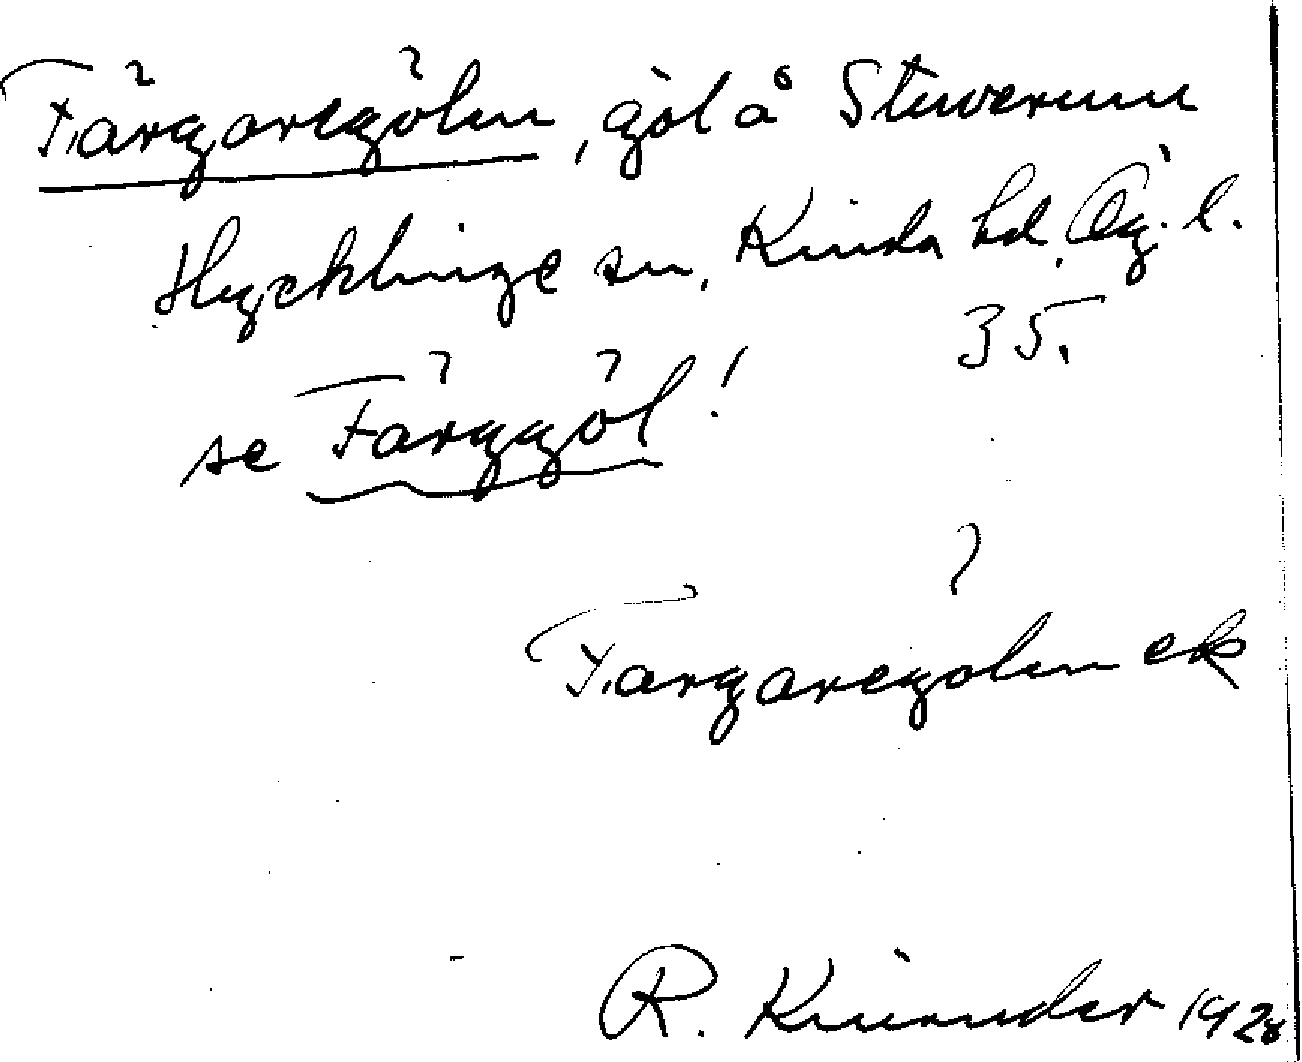 Färgaregölen, göl å Stuverum
Hycklinge sn, Kinda hd, Ög. l.
35.
se Färggöl!
Fargaregolen ek
R. Kinander 1928